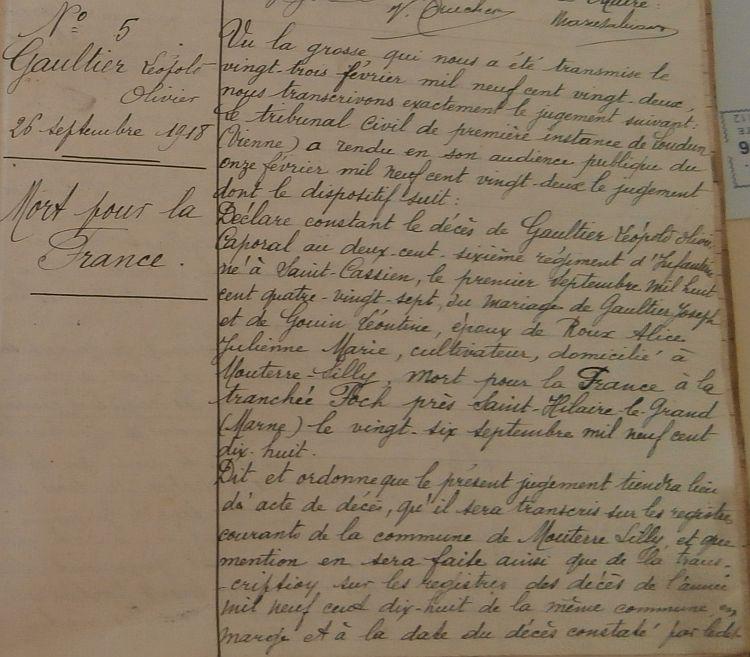 N° 5
Gaultier Léopold
Olivier
26 septembre 1918
Mort pour la
France.
Maire:
Vu la grosse qui nous a été transmise le
vingt-trois février mil neuf cent vingt-deux,
nous transcrivons exactement le jugement suivant:
Le tribunal Civil de première instance de Loudun
(Vienne) a rendu en son audience publique du
onze février mil neuf cent vingt-deux le jugement
dont le dispositif suit:
Déclare constant le décès de Gaultier Léopold Olivier
Caporal au deux-cent-sixième régiment d'Infanterie
né à Saint-Cassien, le premier septembre mil huit
cent quatre-vingt-sept, du mariage de Gaultier Joseph
et de Gouin Léontine, époux de Roux Alice
Julienne Marie, cultivateur, domicilié à
Mouterre-Silly, mort pour la France à la
tranchée Foch près Saint-Hilaire-le-Grand
(Marne) le vingt-six septembre mil neuf cent
dix-huit.
Dit et ordonne que le présent jugement tiendra lieu
d'acte de décès, qu'il sera transcris sur les registres
courants de la commune de Mouterre Silly et que
mention en sera faite ainsi que de la trans-
-cription sur les registres des décès de l'année
mil neuf cent dix-huit de la même commune en
marge et à la date du décès constaté par ledit